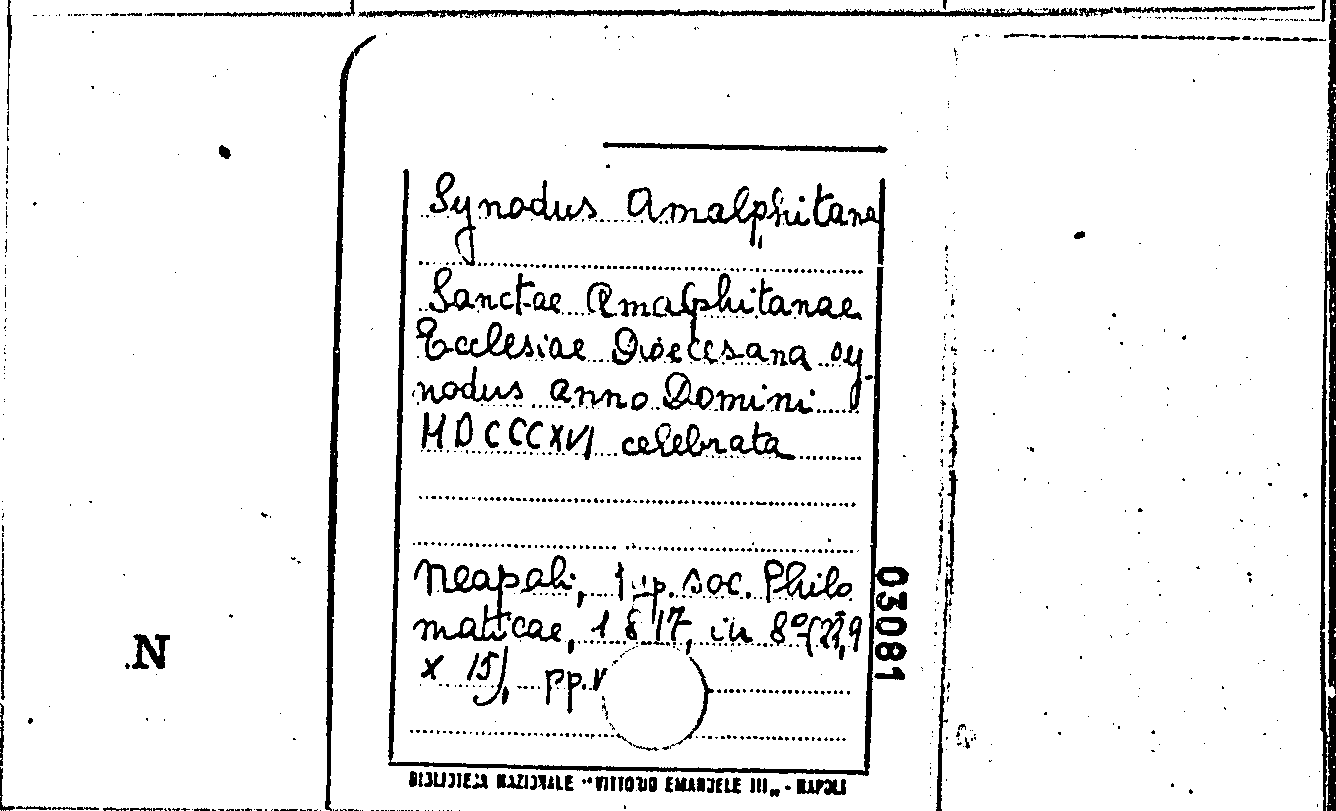 Synodus Amalphitana
Sanctae Amalphitanae
Ecclesiae Dioecesana sy
nodus anno Domini
MDCCCXVI celebrata
Neapoli, Typ. soc. Philo
maticae, 1817, in 8°
x 15), pp. V
03081
N
BIBLIOTECA NAZIONALE "VITTORIO EMANUELE III" - NAPOLI